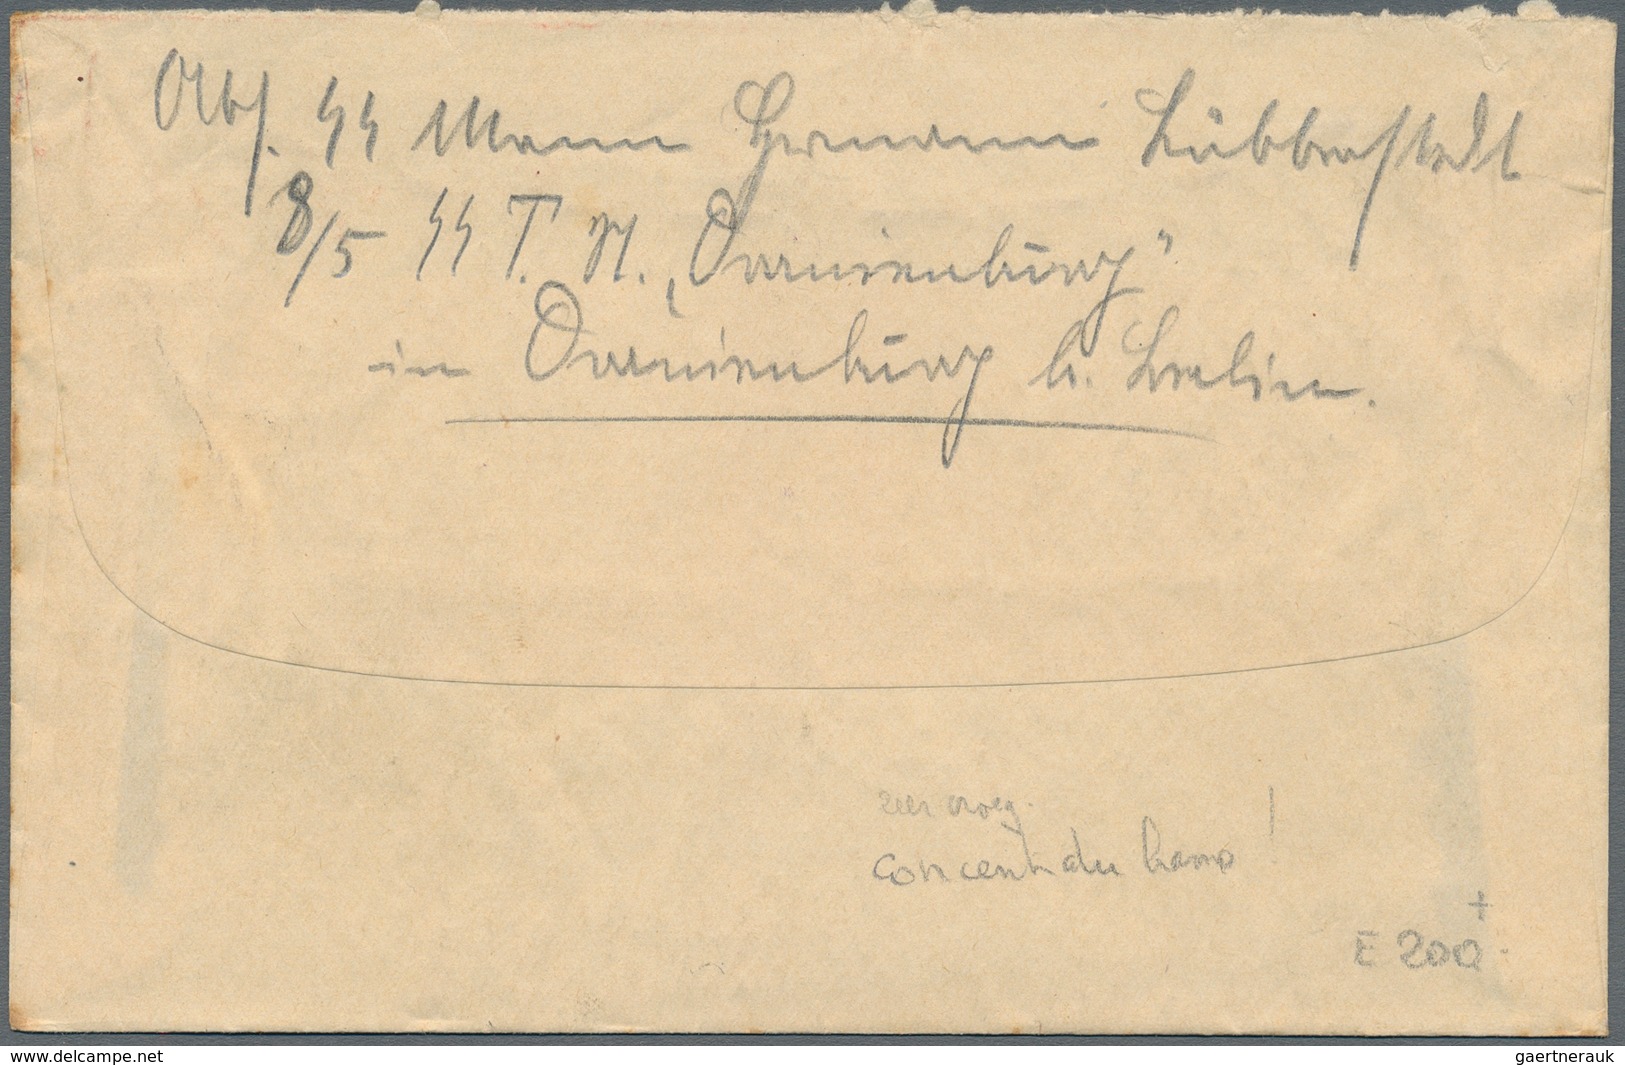 Abs. SS Mann Hermann Lübberstedt
8/5 SS T. V. „Oranienburg"
in Oranienburg b. Berlin.
zeer vroeg.
concentratie kamp !
+
E 200.
www.delcampe.net
gaertnerauk